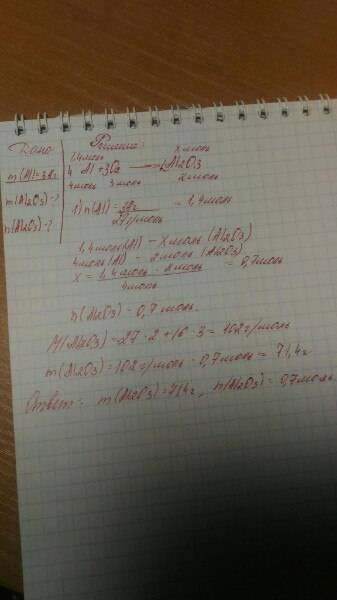 Дано
Решение:
1,4моль x моль
m(Al)=38г 4 Al + 3O2 → 2Al2O3
4моль 3моль 2моль
m(Al2O3)-?
n(Al2O3)-?
1) n(Al)= 38г / 27г/моль = 1,4моль
1,4моль(Al) - x моль (Al2O3)
4моль(Al) - 2моль (Al2O3)
x = 1,4моль · 2моль / 4моль = 0,7моль
n(Al2O3) - 0,7моль.
M(Al2O3)=27·2+16·3=102г/моль
m(Al2O3)=102г/моль · 0,7моль = 71,4г
Ответ: m(Al2O3)=71,4г, n(Al2O3)=0,7моль.